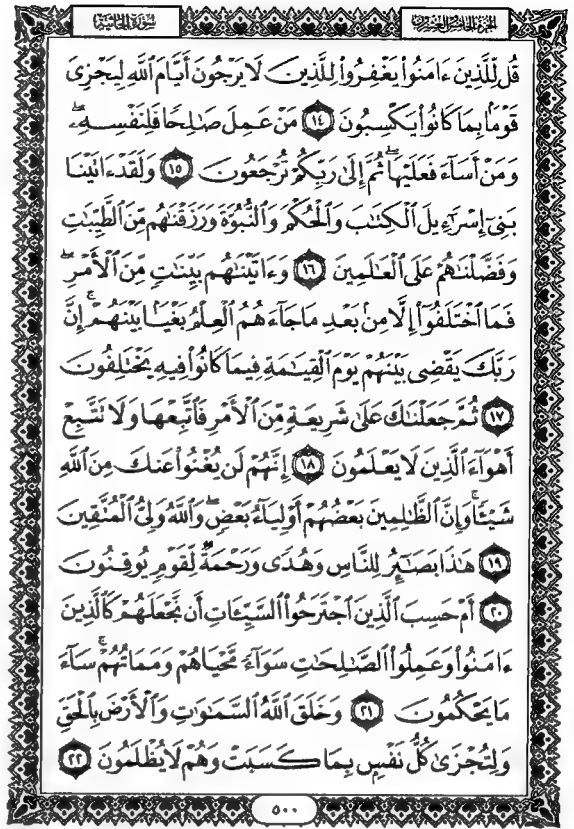 سُورَةُ الجَاثِيَةِ
الجُزْءُ الخَامِسُ وَالعِشْرُونَ
قُل لِّلَّذِينَ ءَامَنُوا۟ يَغْفِرُوا۟ لِلَّذِينَ لَا يَرْجُونَ أَيَّامَ ٱللَّهِ لِيَجْزِىَ
قَوْمًۢا بِمَا كَانُوا۟ يَكْسِبُونَ ﴿١٤﴾ مَنْ عَمِلَ صَـٰلِحًا فَلِنَفْسِهِۦ ۖ
وَمَنْ أَسَآءَ فَعَلَيْهَا ۖ ثُمَّ إِلَىٰ رَبِّكُمْ تُرْجَعُونَ ﴿١٥﴾ وَلَقَدْ ءَاتَيْنَا
بَنِىٓ إِسْرَٰٓءِيلَ ٱلْكِتَـٰبَ وَٱلْحُكْمَ وَٱلنُّبُوَّةَ وَرَزَقْنَـٰهُم مِّنَ ٱلطَّيِّبَـٰتِ
وَفَضَّلْنَـٰهُمْ عَلَى ٱلْعَـٰلَمِينَ ﴿١٦﴾ وَءَاتَيْنَـٰهُم بَيِّنَـٰتٍ مِّنَ ٱلْأَمْرِ ۖ
فَمَا ٱخْتَلَفُوٓا۟ إِلَّا مِنۢ بَعْدِ مَا جَآءَهُمُ ٱلْعِلْمُ بَغْيًۢا بَيْنَهُمْ ۚ إِنَّ
رَبَّكَ يَقْضِى بَيْنَهُمْ يَوْمَ ٱلْقِيَـٰمَةِ فِيمَا كَانُوا۟ فِيهِ يَخْتَلِفُونَ
﴿١٧﴾ ثُمَّ جَعَلْنَـٰكَ عَلَىٰ شَرِيعَةٍ مِّنَ ٱلْأَمْرِ فَٱتَّبِعْهَا وَلَا تَتَّبِعْ
أَهْوَآءَ ٱلَّذِينَ لَا يَعْلَمُونَ ﴿١٨﴾ إِنَّهُمْ لَن يُغْنُوا۟ عَنكَ مِنَ ٱللَّهِ
شَيْـًٔا ۚ وَإِنَّ ٱلظَّـٰلِمِينَ بَعْضُهُمْ أَوْلِيَآءُ بَعْضٍ ۖ وَٱللَّهُ وَلِىُّ ٱلْمُتَّقِينَ
﴿١٩﴾ هَـٰذَا بَصَـٰٓئِرُ لِلنَّاسِ وَهُدًى وَرَحْمَةٌ لِّقَوْمٍ يُوقِنُونَ
﴿٢٠﴾ أَمْ حَسِبَ ٱلَّذِينَ ٱجْتَرَحُوا۟ ٱلسَّيِّـَٔاتِ أَن نَّجْعَلَهُمْ كَٱلَّذِينَ
ءَامَنُوا۟ وَعَمِلُوا۟ ٱلصَّـٰلِحَـٰتِ سَوَآءً مَّحْيَاهُمْ وَمَمَاتُهُمْ ۚ سَآءَ
مَا يَحْكُمُونَ ﴿٢١﴾ وَخَلَقَ ٱللَّهُ ٱلسَّمَـٰوَٰتِ وَٱلْأَرْضَ بِٱلْحَقِّ
وَلِتُجْزَىٰ كُلُّ نَفْسٍۭ بِمَا كَسَبَتْ وَهُمْ لَا يُظْلَمُونَ ﴿٢٢﴾
٥٠٠